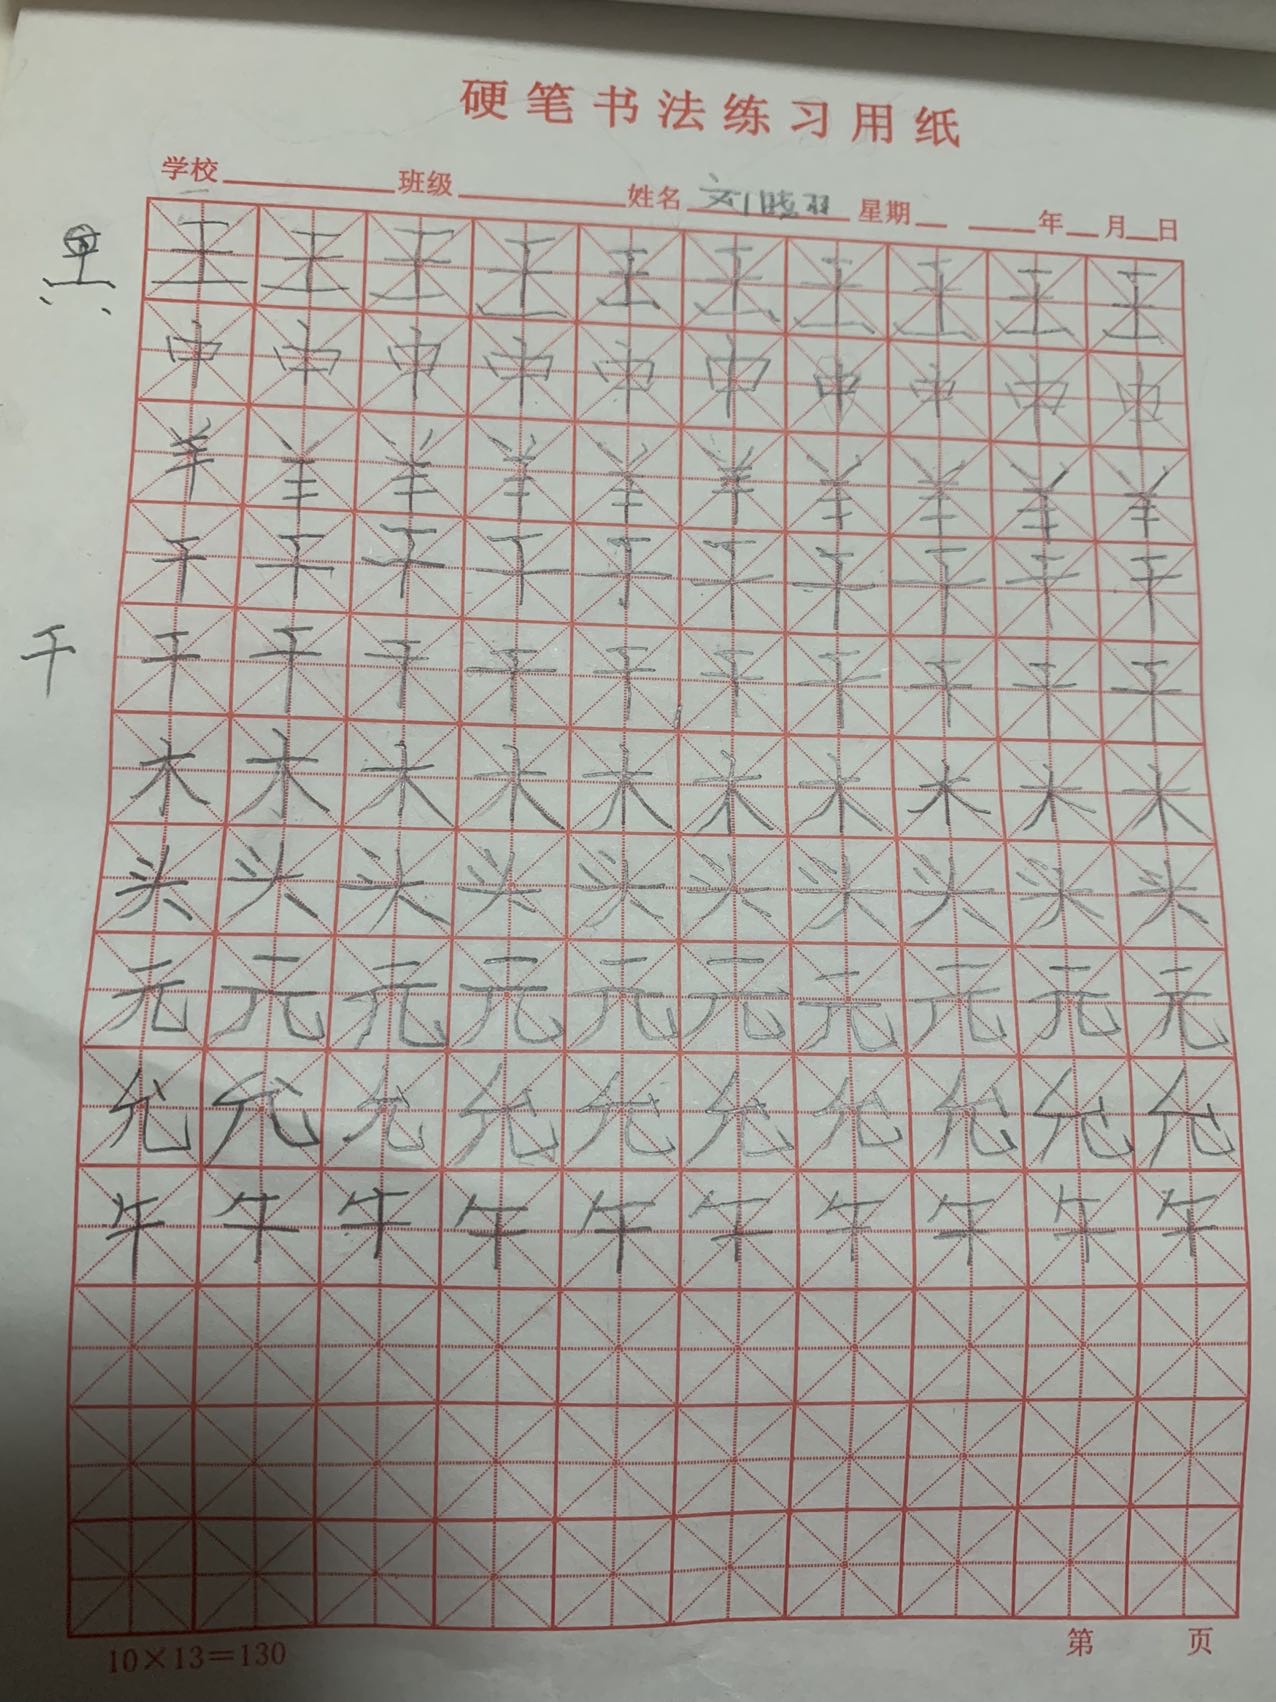 硬笔书法练习用纸
学校 班级 姓名 刘晓羽 星期 年 月 日
王 王 王 王 王 王 王 王 王 王
中 中 中 中 中 中 中 中 中 中
羊 羊 羊 羊 羊 羊 羊 羊 羊 羊
干 干 干 干 干 干 干 干 干 干
千
干 干 干 干 干 干 干 干 干 干
木 木 木 木 木 木 木 木 木 木
头 头 头 头 头 头 头 头 头 头
元 元 元 元 元 元 元 元 元 元
允 允 允 允 允 允 允 允 允 允
午 午 午 午 午 午 午 午 午 午
10×13=130
第 页